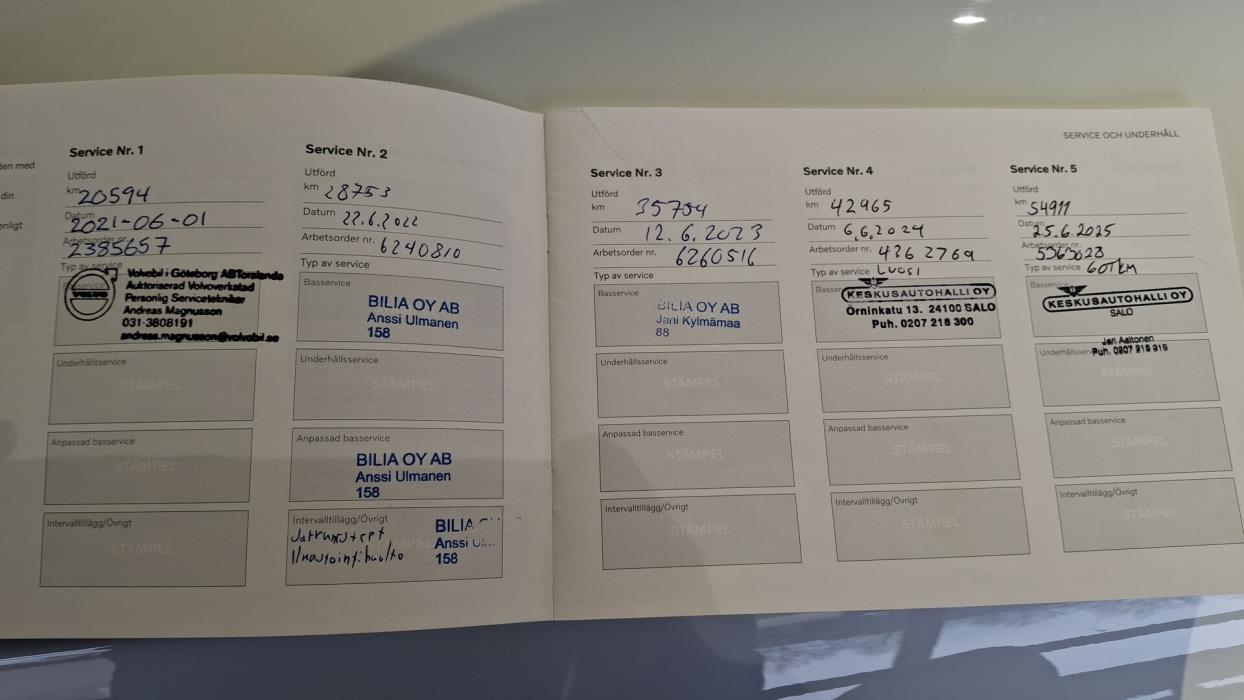 SERVICE OCH UNDERHÅLL
den med
din
enligt
Service Nr. 1
Utförd
km 20594
Datum 2021-06-01
Arbetsorder nr. 2385657
Typ av service
Basservice
Volvobil i Göteborg AB Torslanda
Auktoriserad Volvoverkstad
Personlig Servicetekniker
Andreas Magnusson
031-3808191
andreas.magnusson@volvobil.se
Underhållsservice
STÄMPEL
Anpassad basservice
STÄMPEL
Intervalltillägg/Övrigt
STÄMPEL
Service Nr. 2
Utförd
km 28753
Datum 22.6.2022
Arbetsorder nr. 6240810
Typ av service
Basservice
BILIA OY AB
Anssi Ulmanen
158
Underhållsservice
STÄMPEL
Anpassad basservice
BILIA OY AB
Anssi Ulmanen
158
Intervalltillägg/Övrigt
BILIA
Anssi
158
Service Nr. 3
Utförd
km 35754
Datum 12.6.2023
Arbetsorder nr. 6260516
Typ av service
Basservice
BILIA OY AB
Jani Kylmämaa
88
Underhållsservice
STÄMPEL
Anpassad basservice
STÄMPEL
Intervalltillägg/Övrigt
STÄMPEL
Service Nr. 4
Utförd
km 42965
Datum 6.6.2024
Arbetsorder nr. 4362769
Typ av service Luosi
KESKUSAUTOHALLI OY
Örninkatu 13. 24100 SALO
Puh. 0207 218 300
Underhållsservice
STÄMPEL
Anpassad basservice
STÄMPEL
Intervalltillägg/Övrigt
STÄMPEL
Service Nr. 5
Utförd
km 54911
Datum 25.6.2025
Arbetsorder nr. 5363628
Typ av service 60TKM
Basservice
KESKUSAUTOHALLI OY
SALO
Jari Aaltonen
Puh. 0207 219 319
STÄMPEL
Anpassad basservice
STÄMPEL
Intervalltillägg/Övrigt
STÄMPEL